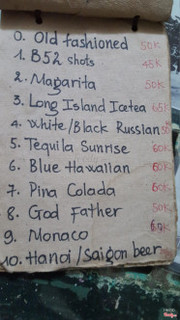 0. Old fashioned 50K
1. B52 shots 45K
2. Magarita 50K
3. Long Island Icetea 65K
4. White/Black Russian
5. Tequila Sunrise 60K
6. Blue Hawaiian 60K
7. Pina Colada 60K
8. God Father 50K
9. Monaco
10. Hanoi/Saigon beer